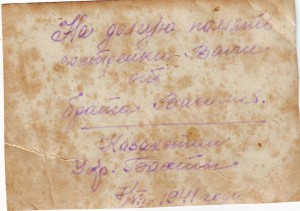 На долгую память
сестренки Вали
от
брата Василия.
Казахстан
Укр. Бахты
1941 года